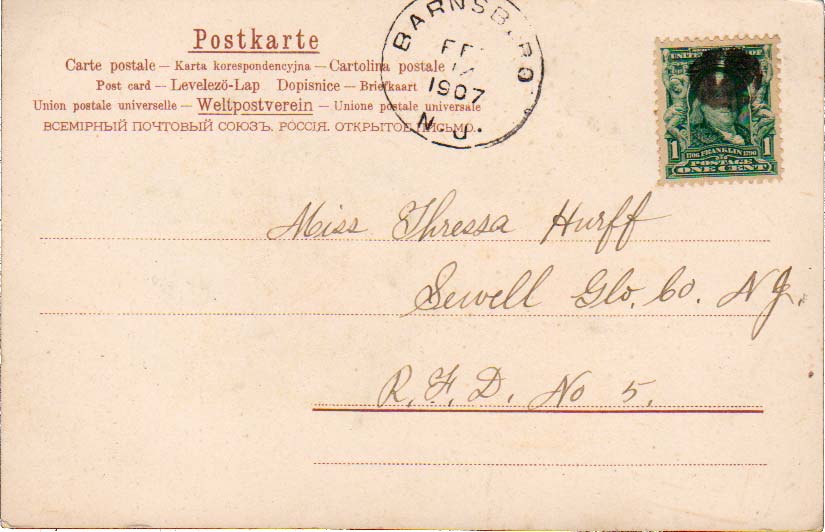 Postkarte
Carte postale — Karta korespondencyjna — Cartolina postale
Post card — Levelező-Lap Dopisnice — Briefkaart
Union postale universelle — Weltpostverein — Unione postale universale
ВСЕМІРНЫЙ ПОЧТОВЫЙ СОЮЗЪ. РОССІЯ. ОТКРЫТОЕ ПИСЬМО.
BARNSBORO
1907
N.J.
1 1
1706 FRANKLIN 1790
POSTAGE
ONE CENT
Miss Thressa Hurff
Sewell Glo. Co. NJ.
R. F. D. No 5.